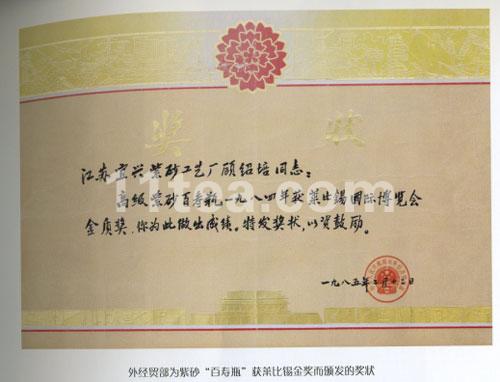 奖 状
江苏宜兴紫砂工艺厂顾绍培同志：
高级紫砂百寿瓶一九八四年获莱比锡国际博览会
金质奖，你为此做出成绩。特发奖状，以资鼓励。
一九八五年二月十二日
11tea.com
外经贸部为紫砂“百寿瓶”获莱比锡金奖而颁发的奖状